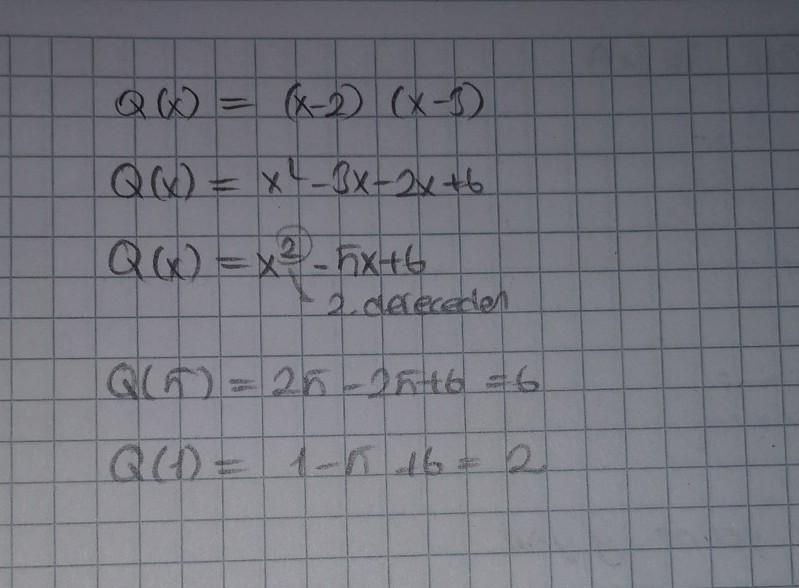 Q(x) = (x-2) (x-3)
Q(x) = x² - 3x - 2x + 6
Q(x) = x² - 5x + 6
2. dereceden
Q(5) = 25 - 25 + 6 = 6
Q(1) = 1 - 5 + 6 = 2